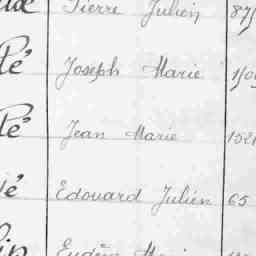 Pierre Julien 87
lé Joseph Marie 1/0
lé Jean Marie 152
é Edouard Julien 65
lip Eugène